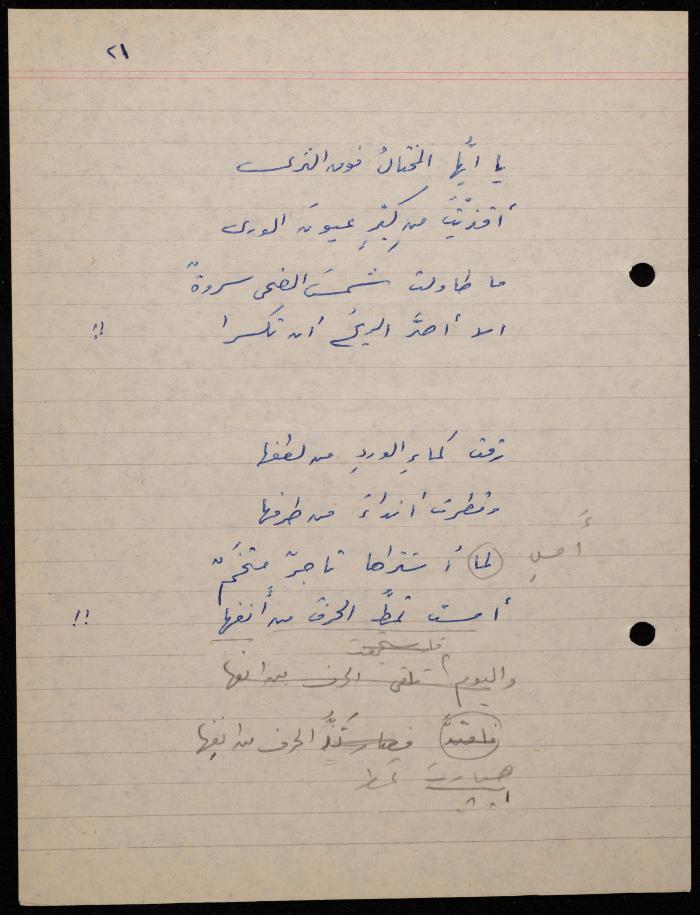 ٢١
يا أيُّها المختالُ فوق الثرى
أقذيْتَ من كِبْرٍ عيونَ الورى
ما طاولت شمسَ الضحى سروةٌ
الا أصرَّ الريحُ أن تكسرا !!
رقت كماءِ الوردِ من لطفها
وقطرت أنداءً من ظرفها
لما أشتراها تاجرٌ متخمٌ
أمست تمطُّ الحرفَ من أنفها !!
واليوم تلقي الحرف من انفها
فصار الحرف من انفها
صارت تمط